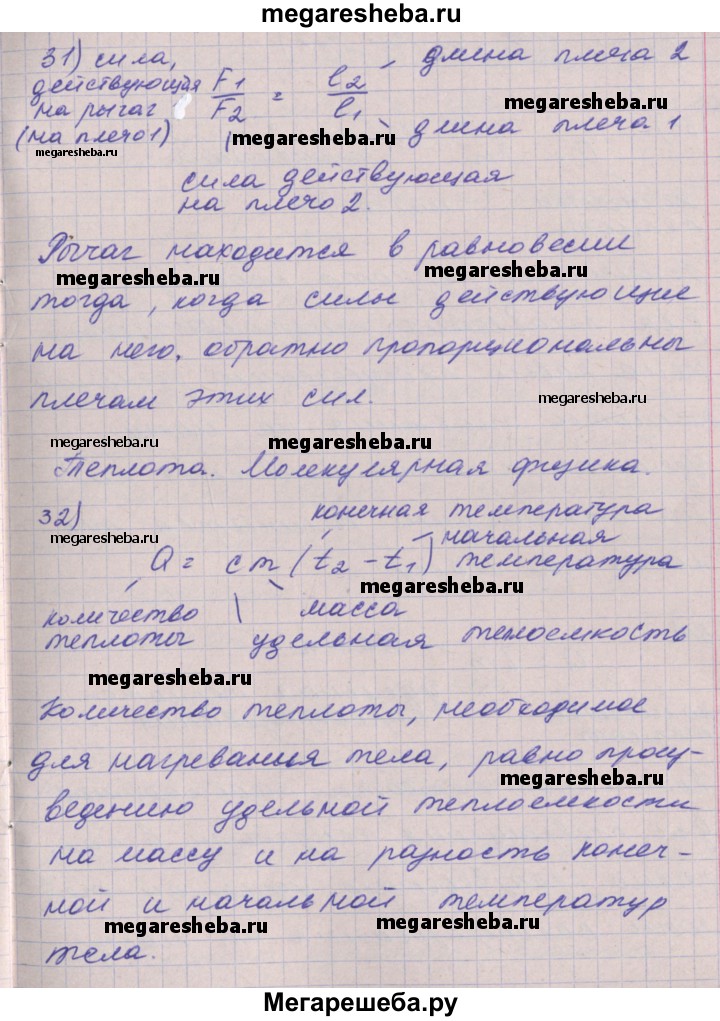 megaresheba.ru
31) сила, длина плеча 2
действующая F1 = l2
на рычаг F2 l1 megaresheba.ru
(на плечо 1) megaresheba.ru длина плеча 1
megaresheba.ru
сила действующая
на плечо 2.
Рычаг находится в равновесии
megaresheba.ru megaresheba.ru
тогда, когда силы действующие
на него, обратно пропорциональны
плечам этих сил. megaresheba.ru
megaresheba.ru megaresheba.ru
Теплота. Молекулярная физика.
32) конечная температура
megaresheba.ru начальная
Q = cm (t2 - t1) температура
megaresheba.ru
количество масса
теплоты удельная темоемкость
megaresheba.ru
Количество теплоты, необходимое
для нагревания тела, равно прои-
megaresheba.ru
ведению удельной теплоемкости
на массу и на разность конеч-
ной и начальной температур
megaresheba.ru megaresheba.ru
тела.
Мегарешеба.ру